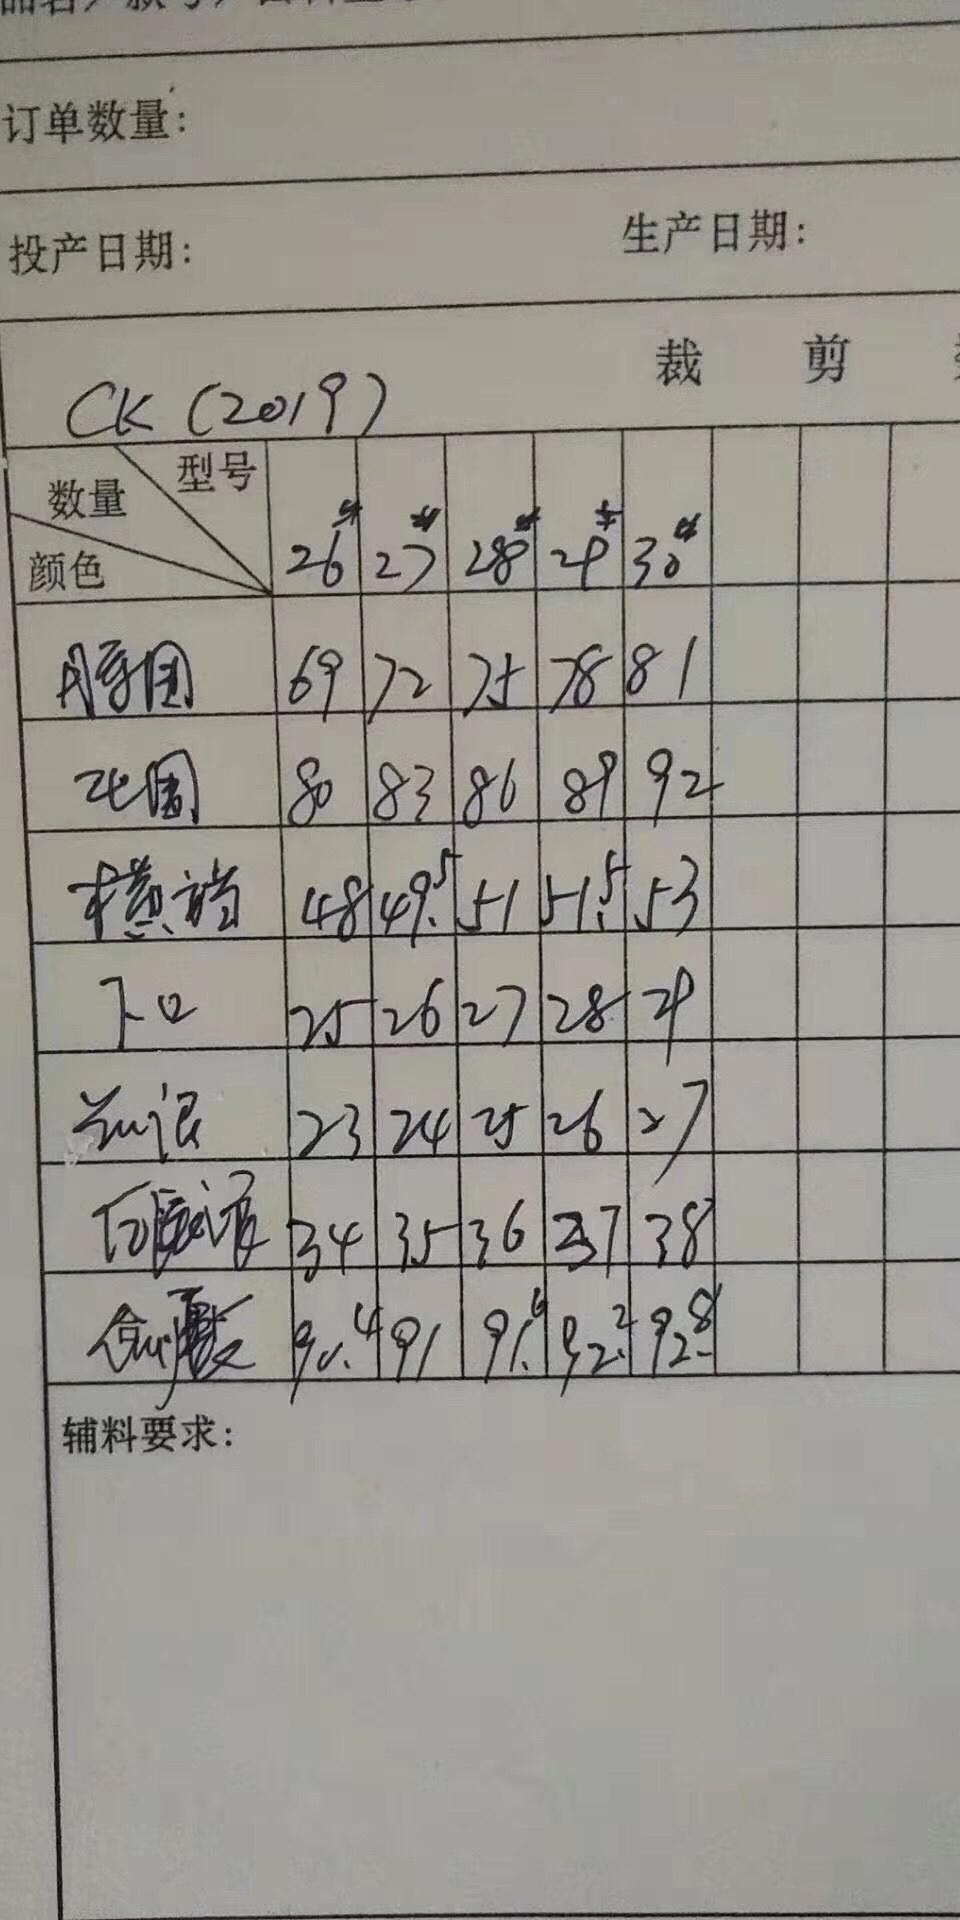 订单数量:
投产日期: 生产日期:
裁 剪
CK (2019)
数量 型号 颜色 26# 27# 28# 29# 30#
腰围 69 72 75 78 81
坐围 80 83 86 89 92
横裆 48 49.5 51 51.5 53
下口 25 26 27 28 29
前浪 23 24 25 26 27
后浪 34 35 36 37 38
90.4 91 91.6 92.2 92.8
辅料要求: